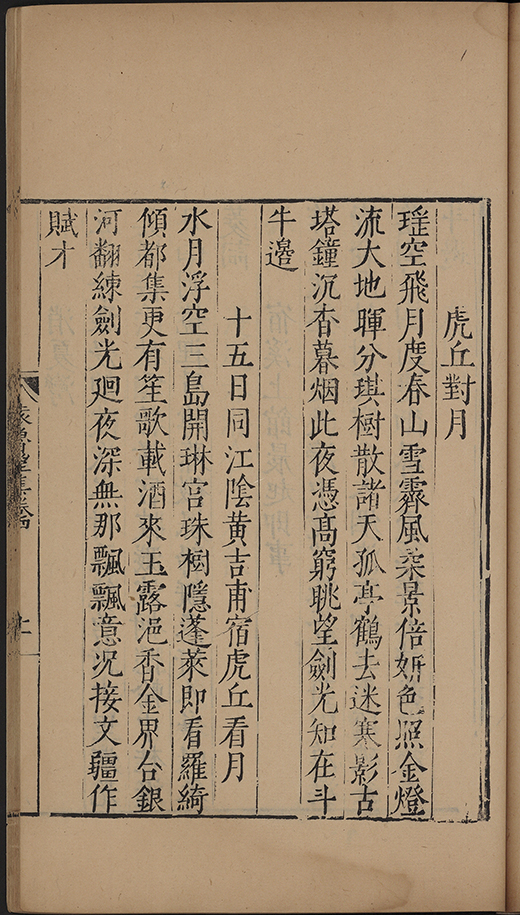 虎丘對月
瑤空飛月度春山雪霽風柔景倍妍色照金燈
流大地暉分琪樹散諸天孤亭鶴去迷寒影古
塔鐘沉杳暮烟此夜憑髙窮眺望劍光知在斗
牛邊
十五日同江陰黄吉甫宿虎丘看月
水月浮空三島開琳宫珠樹隱蓬萊即看羅綺
傾都集更有笙歌載酒來玉露浥香金界台銀
河翻練劍光廻夜深無那飄飄意况接文疆作
賦才
袁魯望集卷